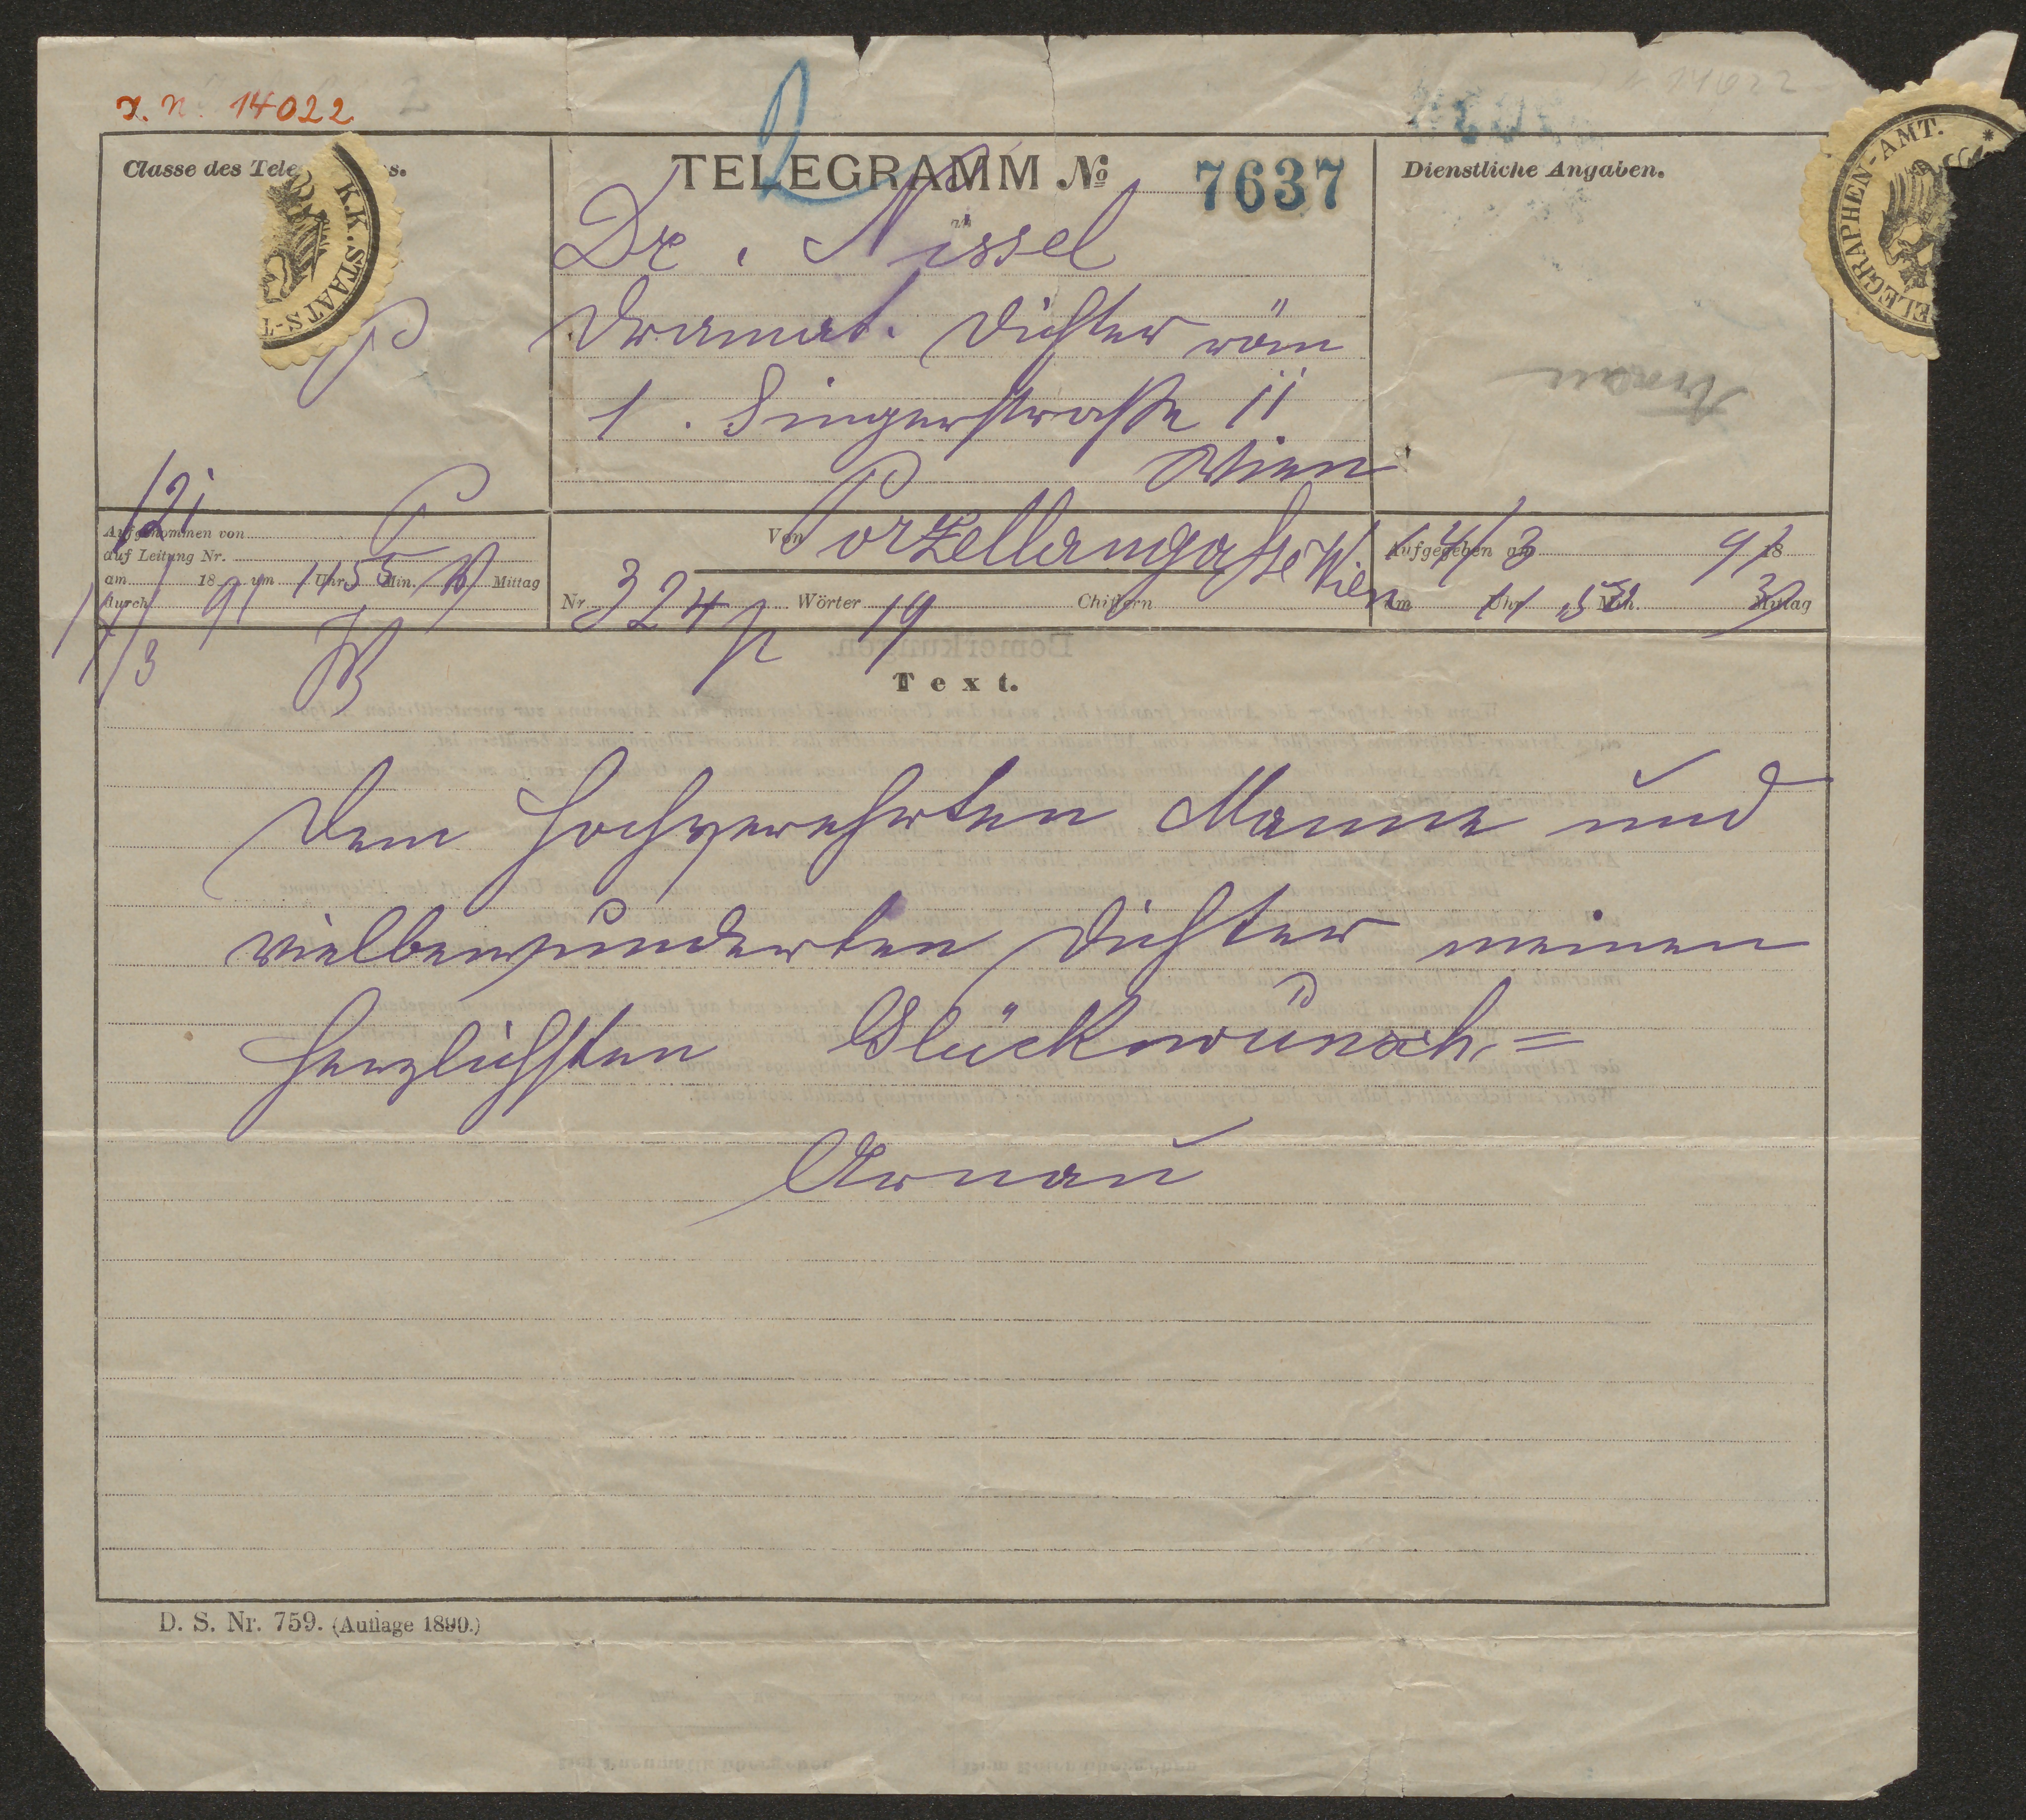 I. N. 14022
Classe des Tele s.
K.K. STAATS-T
TELEGRAMM No 7637
2
Dienstliche Angaben.
ELEGRAPHEN-AMT.
Dr. Nissel
Dramat. Dichter
1. Singerstraße 11
Wien
P
121
Aufgenommen von
auf Leitung Nr.
am 18 91 um 11 Uhr 55 Min. Mittag
durch
14/3
Von Porzellangasse Wien
Nr. 324 Wörter 19 Chiffern
Aufgegeben am 14/3 91 18
um 11 Uhr Min. Mittag
Text.
Dem hochverehrten Manne und
vielbewunderten Dichter meinen
herzlichsten Glückwunsch =
Arnau
D. S. Nr. 759. (Auflage 1890.)